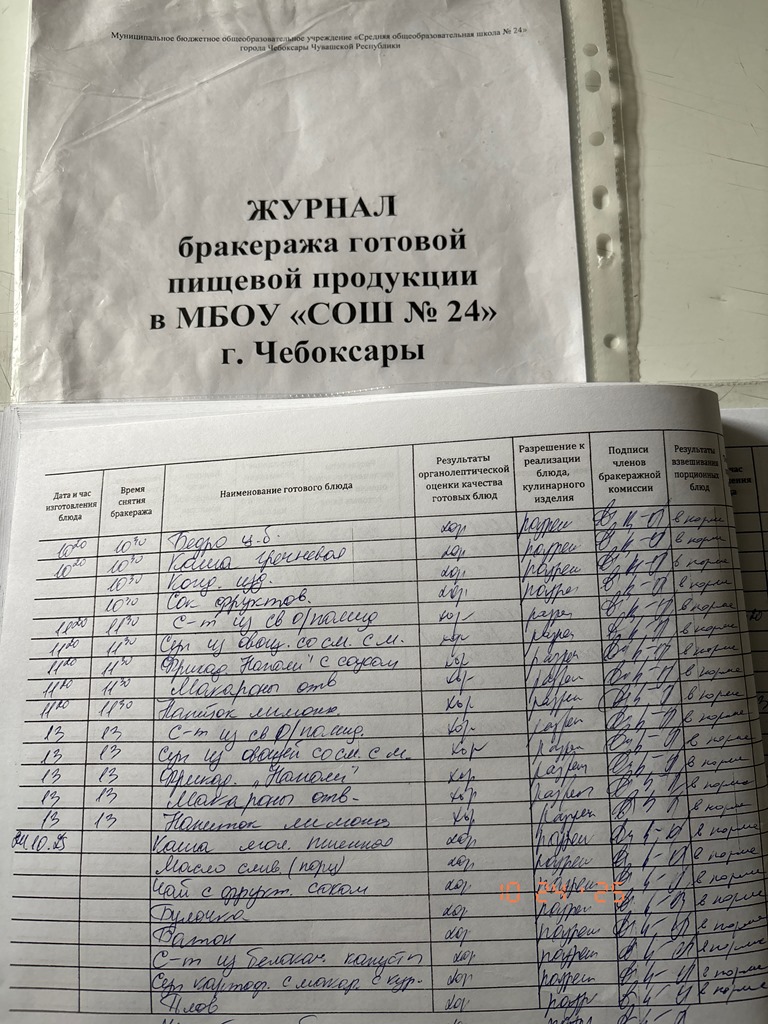 Муниципальное бюджетное общеобразовательное учреждение «Средняя общеобразовательная школа № 24»
города Чебоксары Чувашской Республики
ЖУРНАЛ
бракеража готовой
пищевой продукции
в МБОУ «СОШ № 24»
г. Чебоксары
Дата и час изготовления блюда Время снятия бракеража Наименование готового блюда Результаты органолептической оценки качества готовых блюд Разрешение к реализации блюда, кулинарного изделия Подписи членов бракеражной комиссии Результаты взвешивания порционных блюд
10 20 10 30 Бедро ц.б. хор разреш в норме
10 20 10 30 Каша гречневая хор разреш в норме
10 30 Конд. изд. хор разреш в норме
10 30 Сок фруктов. хор разреш в норме
11 20 11 30 С-т из св о/помид хор разреш в норме
11 20 11 30 Суп из овощ. со см. с м. хор разреш в норме
11 20 11 30 Фрикад. "Наполи" с соусом хор разреш в норме
11 20 11 30 Макароны отв хор разреш в норме
11 20 11 30 Напиток лимонн. хор разреш в норме
13 13 С-т из св о/помид. хор разреш в норме
13 13 Суп из овощей со см. с м. хор разреш в норме
13 13 Фрикад. "Наполи" хор разреш в норме
13 13 Макароны отв. хор разреш в норме
13 13 Напиток лимонн хор разреш в норме
24.10.25 Каша мол. пшенная хор разреш в норме
Масло слив (порц) хор разреш в норме
Чай с фрукт. соком хор разреш в норме
10 24 '25
Булочка хор разреш в норме
Батон хор разреш в норме
С-т из белокач. капусты хор разреш в норме
Суп картоф. с макар. с кур. хор разреш в норме
Плов хор разр в норме